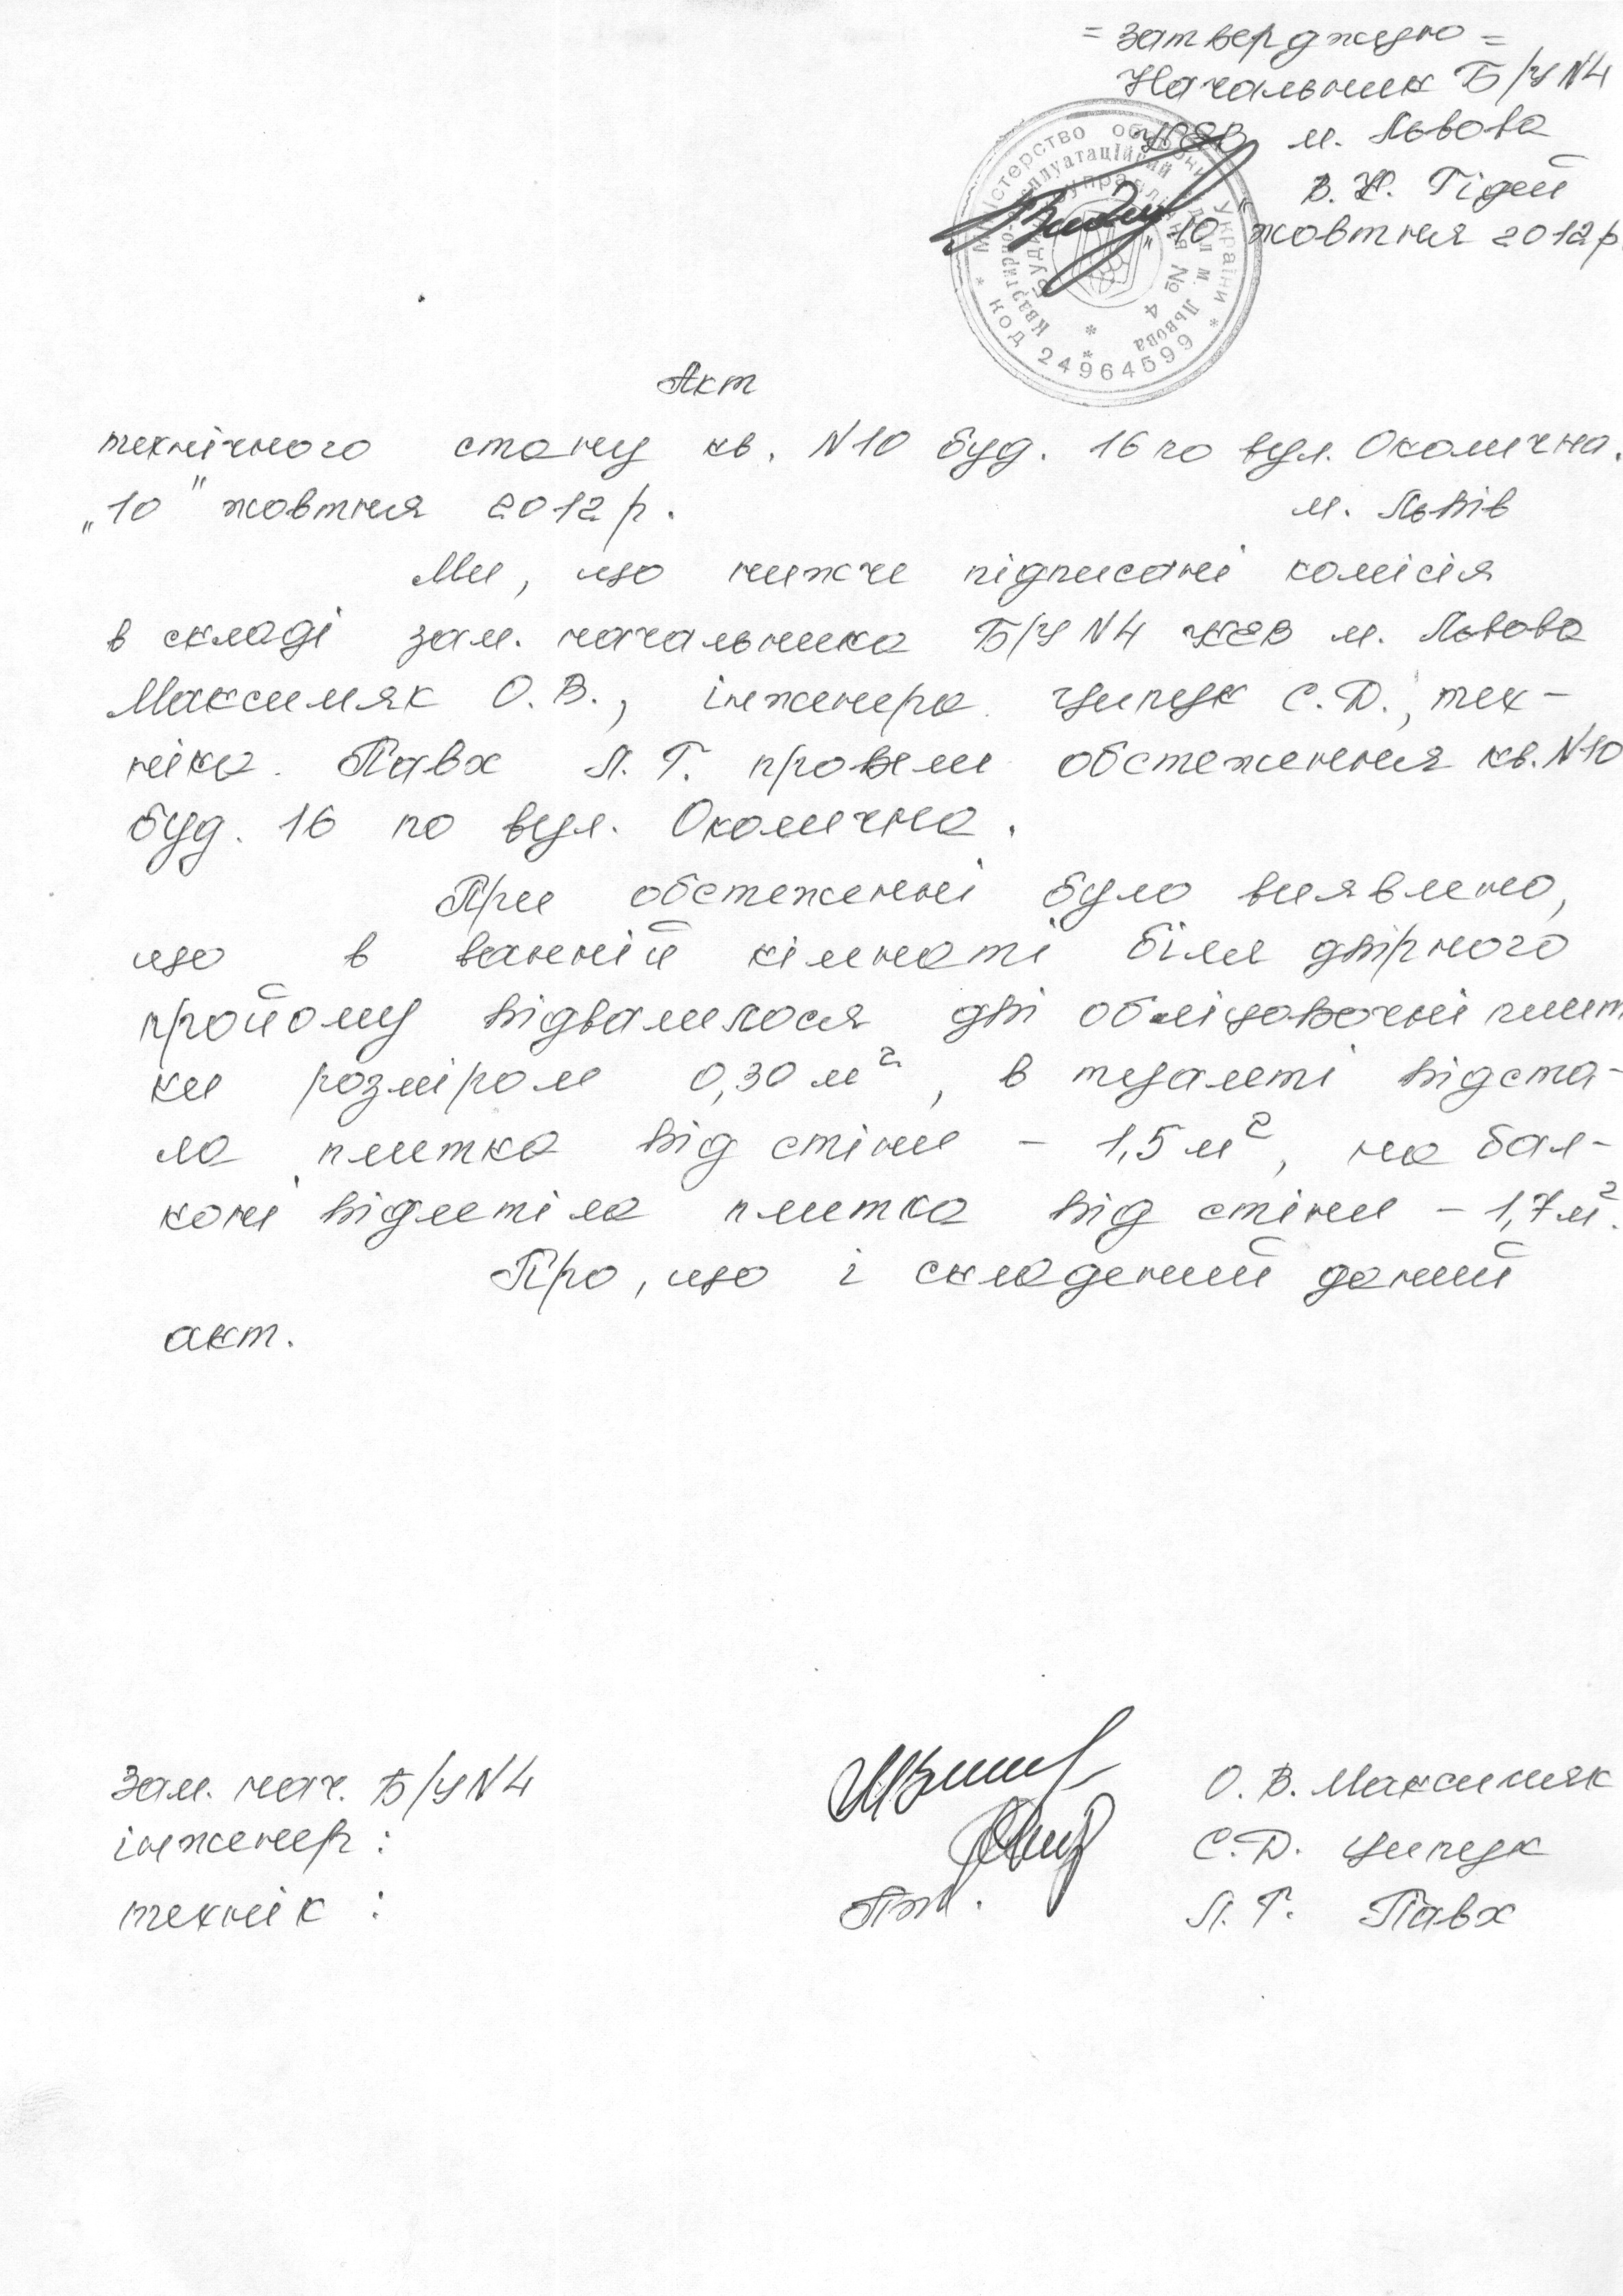 = Затверджую =
Начальник Б/У N4
КЕВ м. Львова
В. К. Гідей
„10" жовтня 2012 р.
Міністерство оборони України
* код 24964599 *
Квартирно-експлуатаційний відділ м. Львова
Будинкоуправління № 4
Акт
технічного стану кв. N10 буд. 16 по вул. Околична.
„10" жовтня 2012 р.
м. Львів
Ми, що нижче підписані комісія
в складі зам. начальника Б/У N4 КЕВ м. Львова
Максимляк О. В., інженера Ципук С. Д., тех-
ніка Павх Л. Г. провели обстеження кв. N10
буд. 16 по вул. Околична.
При обстеженні було виявлено,
що в ванній кімнаті біля двірного
пройому відвалилося дві обліцовочні плит
ки розміром 0,30 м², в туалеті відста-
ла плитка від стіни - 1,5 м², на бал-
коні відлетіла плитка від стіни - 1,7 м².
Про, що і складений даний
акт.
Зам. нач. Б/У N4 О. В. Максимляк
інженер: С. Д. Ципук
технік: Л. Г. Павх